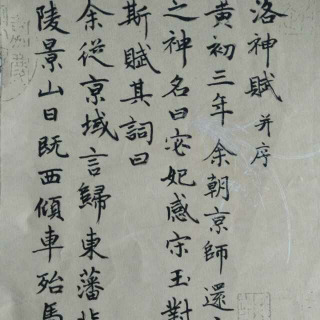 洛神賦并序
黄初三年余朝京師還
之神名曰宓妃感宋玉對
斯賦其詞曰
余從京域言歸東藩
陵景山日既西傾車殆馬